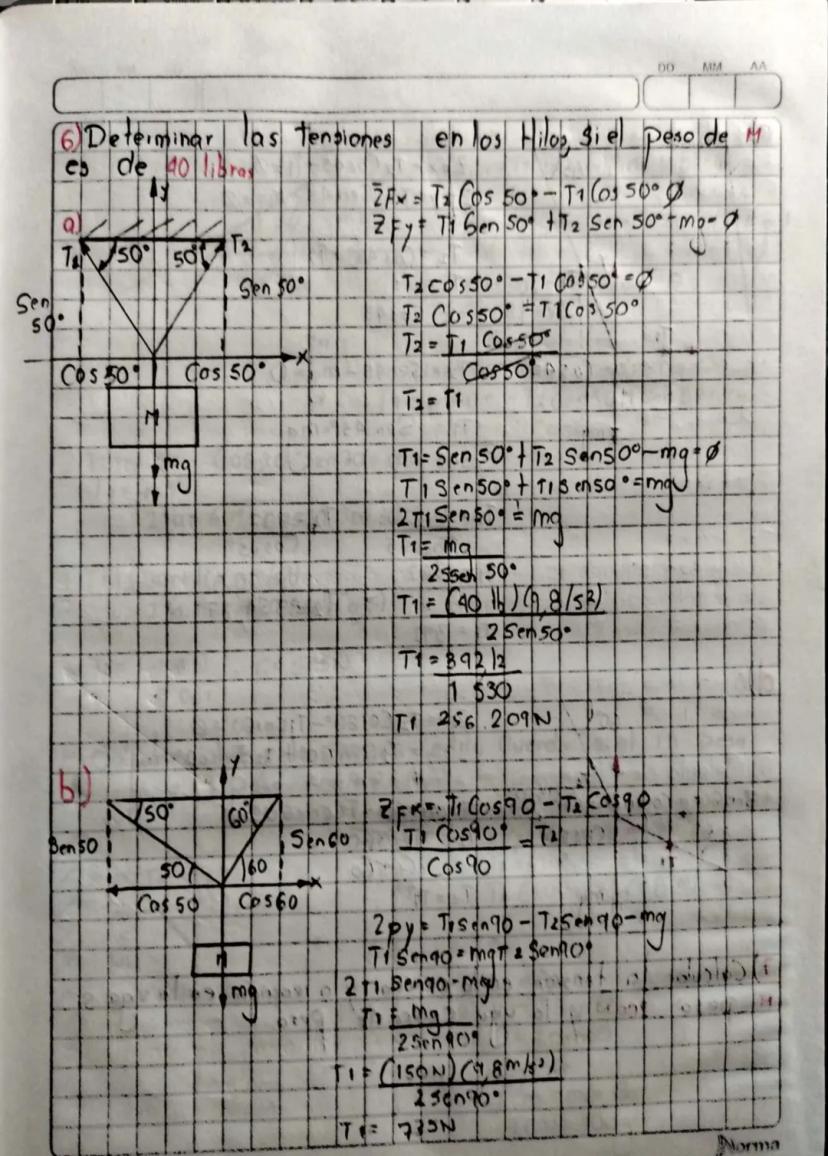 DD MM AA
6) Determinar las tensiones en los Hilos, si el peso de M
es de 40 libras
a)
y
T1 50° 50° T2
Sen 50°
Sen 50°
x
Cos 50° Cos 50°
M
mg
ΣFx = T2 Cos 50° - T1 Cos 50° Ø
ΣFy = T1 Sen 50° + T2 Sen 50° - mg = Ø
T2 cos 50° - T1 Cos 50° = Ø
T2 Cos 50° = T1 Cos 50°
T2 = T1 Cos 50°
Cos 50°
T2 = T1
T1 = Sen 50° + T2 Sen 50° - mg = Ø
T1 Sen 50° + T1 Sen 50° = mg
2T1 Sen 50° = mg
T1 = mg
2 Sen 50°
T1 = (40 lb)(9,8/s2)
2 Sen 50°
T1 = 392,2
1 530
T1 256 209N
b)
y
50° 60°
Sen 50
Sen 60
50 60
x
Cos 50 Cos 60
M
mg
ΣFx = T1 Cos 90 - T2 Cos 90
T1 Cos 90° = T2
Cos 90
ΣFy = T1 Sen 90 - T2 Sen 90 - mg
T1 Sen 90 = mg T2 Sen 90°
2T1 Sen 90 - mg
T1 = mg
2 Sen 90°
T1 = (150N)(9,8m/s2)
2 Sen 90°
T1 = 735N
Norma